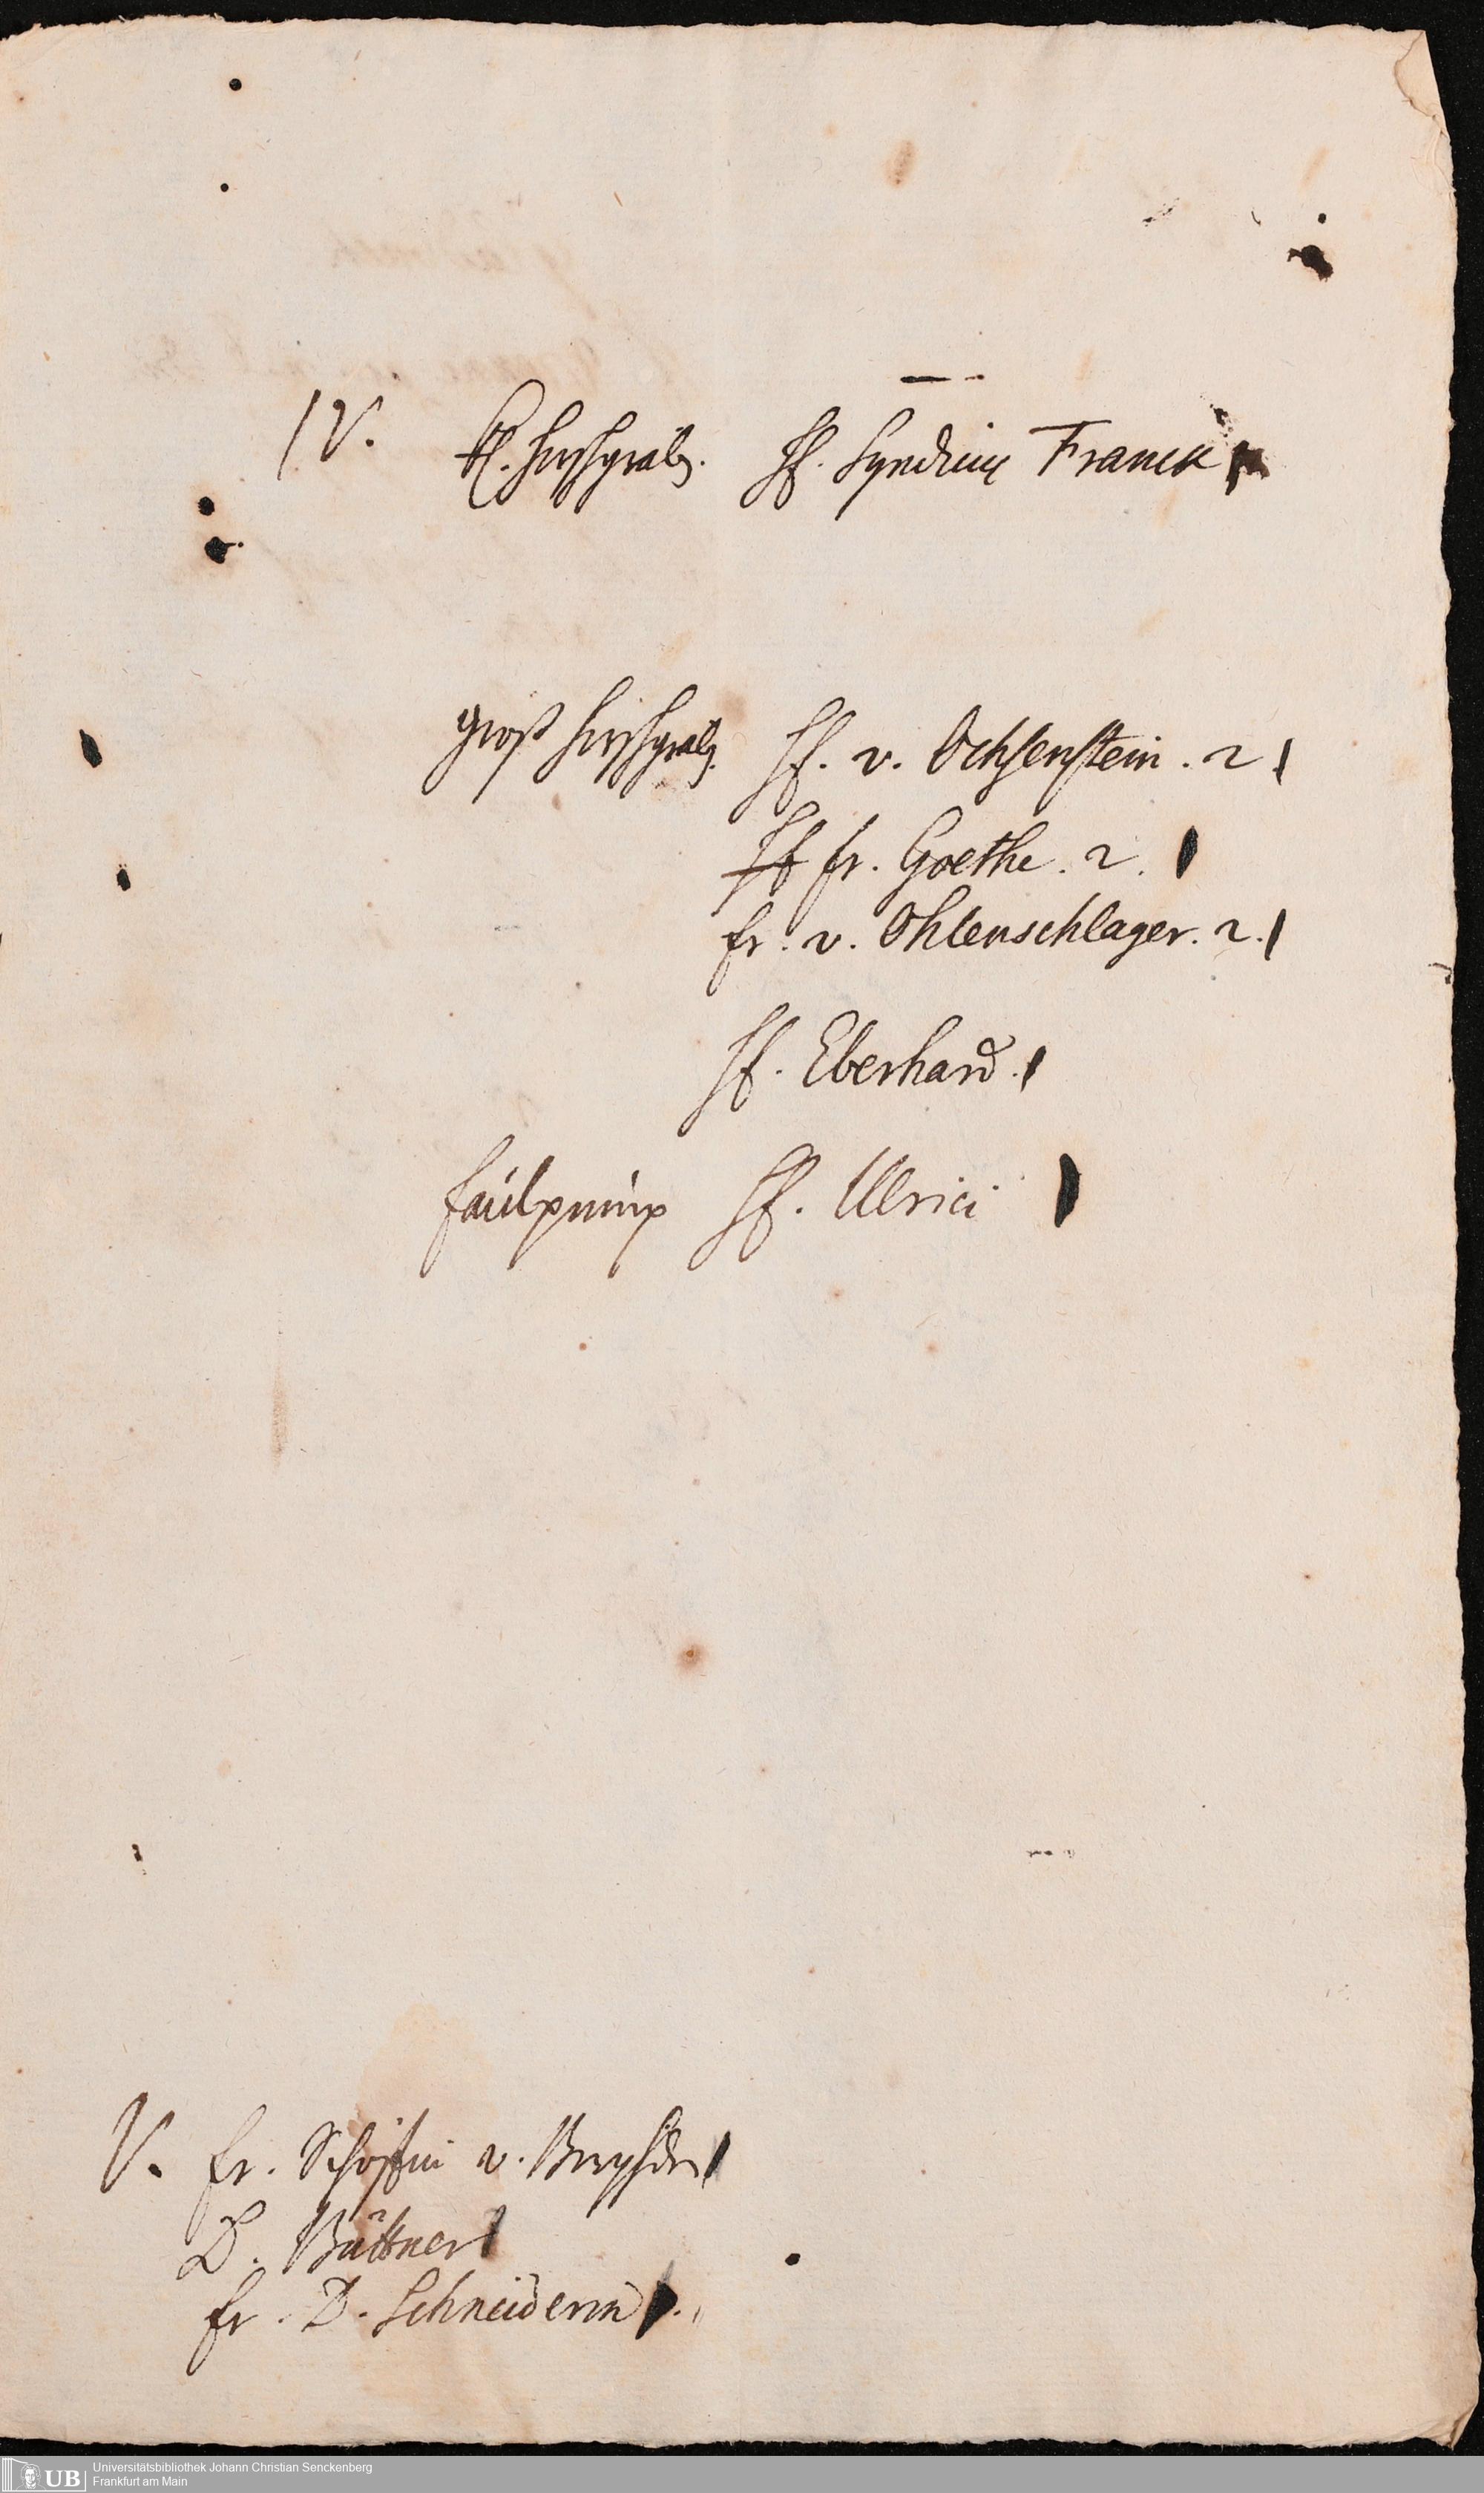 IV. Kl. Hirschgrab. H. Syndicus Franck
Groß Hirschgrab. H. v. Ochsenstein. 2
H fr. Goethe. 2.
fr. v. Ohlenschlager. 2.
H. Eberhard.
Faulpump H. Ulrici
V. fr. Schöffin v.
D. Büttner
fr. D. Schneiderin
UB Universitätsbibliothek Johann Christian Senckenberg
Frankfurt am Main